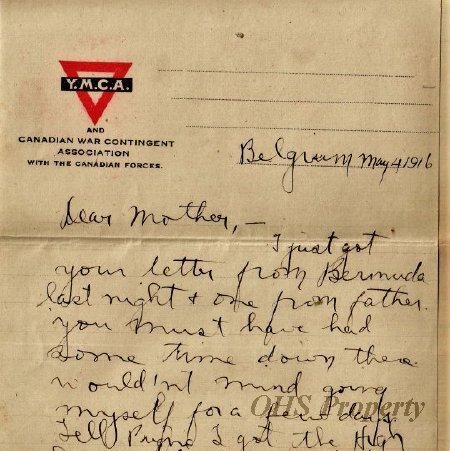 Y.M.C.A.
AND
CANADIAN WAR CONTINGENT
ASSOCIATION
WITH THE CANADIAN FORCES.
Belgium May 4 1916
Dear Mother, —
I just got
your letter from Bermuda
last night & one from father.
You must have had
some time down there
would'nt mind going
myself for a few days.
OHS Property
Tell I got the High